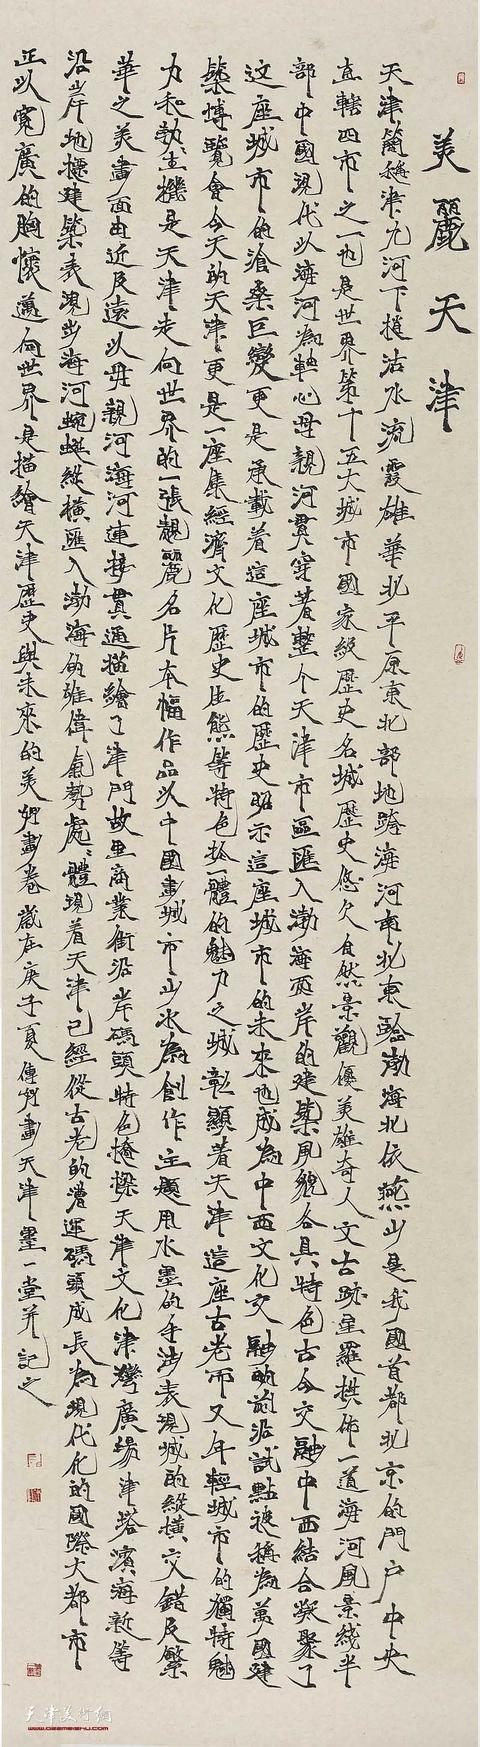 美麗天津
天津簡稱津九河下梢沽水流霞雄華北平原東北部地跨海河南北東臨渤海北依燕山是我國首都北京的門户中央
直轄四市之一也是世界第十五大城市國家級歷史名城歷史悠久自然景觀優美雄奇人文古跡星羅拱佈一道海河風景綫半
部中國現代以海河為軸心母親河貫穿著整个天津市區匯入渤海兩岸的建築風貌各具特色古今交融中西結合凝聚了
这座城市的滄桑巨變更是承載着這座城市的歷史昭示這座城市的未來也成為中西文化交融的前沿試點被稱為萬國建
築博覽會今天的天津更是一座集經濟文化歷史生態等特色於一體的魅力之城彰顯着天津這座古老而又年輕城市的獨特魅
力和勃勃生機是天津走向世界的一張靚麗名片本幅作品以中國畫城市山水為創作主題用水墨的手法表現城的縱橫交錯及繁
華之美畫面由近及遠以母親河海河連接貫通描繪了津門故里商業街沿岸碼頭特色橋樑天津文化津灣廣場津塔濱海新等
沿岸地標建築表現出海河蜿蜒縱橫匯入渤海的雄偉氣勢處處體現着天津已經從古老的漕運碼頭成長為現代化的國際大都市
正以寬廣的胸懷邁向世界是描繪天津歷史與未來的美好畫卷歲在庚子夏傳刚畫天津墨一堂并記之
天津美术網